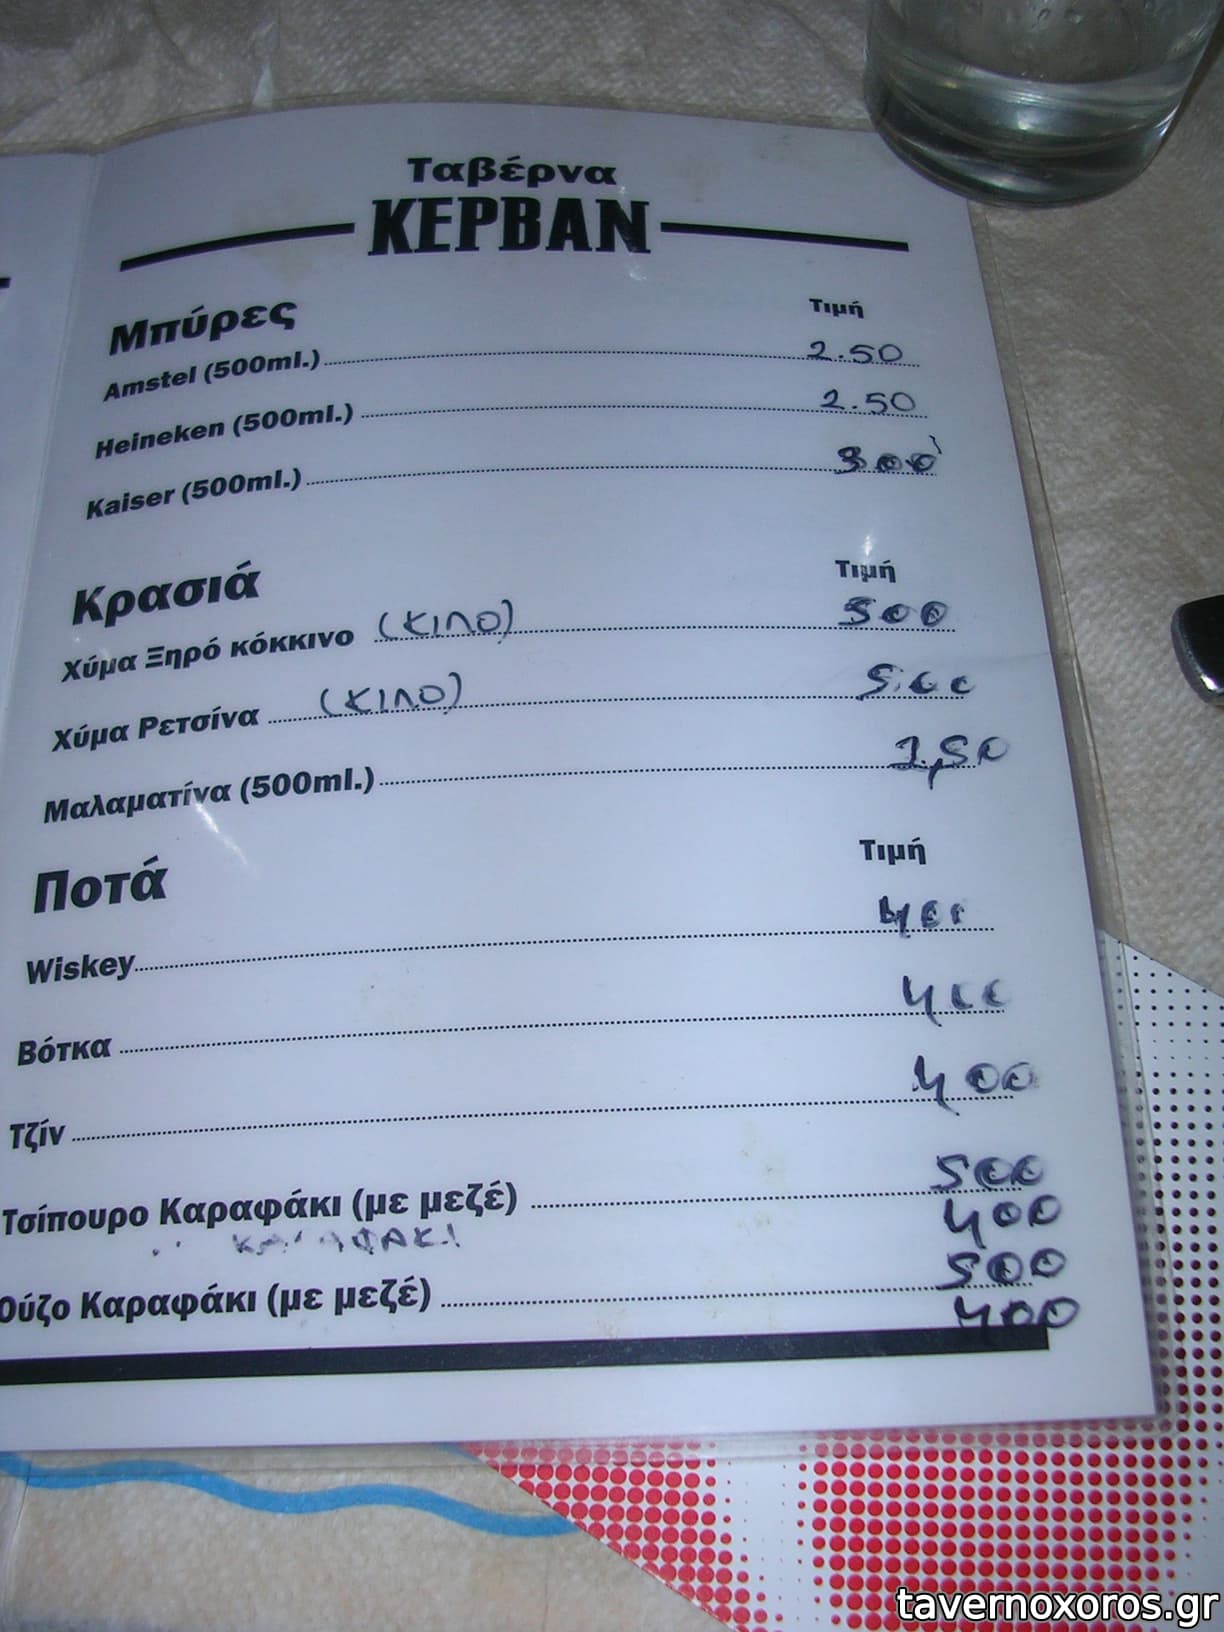 Ταβέρνα
ΚΕΡΒΑΝ
Μπύρες Τιμή
Amstel (500ml.) 2.50
Heineken (500ml.) 2.50
Kaiser (500ml.) 300
Κρασιά Τιμή
Χύμα Ξηρό κόκκινο (ΚΙΛΟ) 500
Χύμα Ρετσίνα (ΚΙΛΟ) 500
Μαλαματίνα (500ml.)
Ποτά Τιμή
Wiskey 400
Βότκα 400
Τζίν 400
Τσίπουρο Καραφάκι (με μεζέ) 500
ΚΑΡΑΦΑΚΙ 400
Ούζο Καραφάκι (με μεζέ) 500
400
tavernoxoros.gr